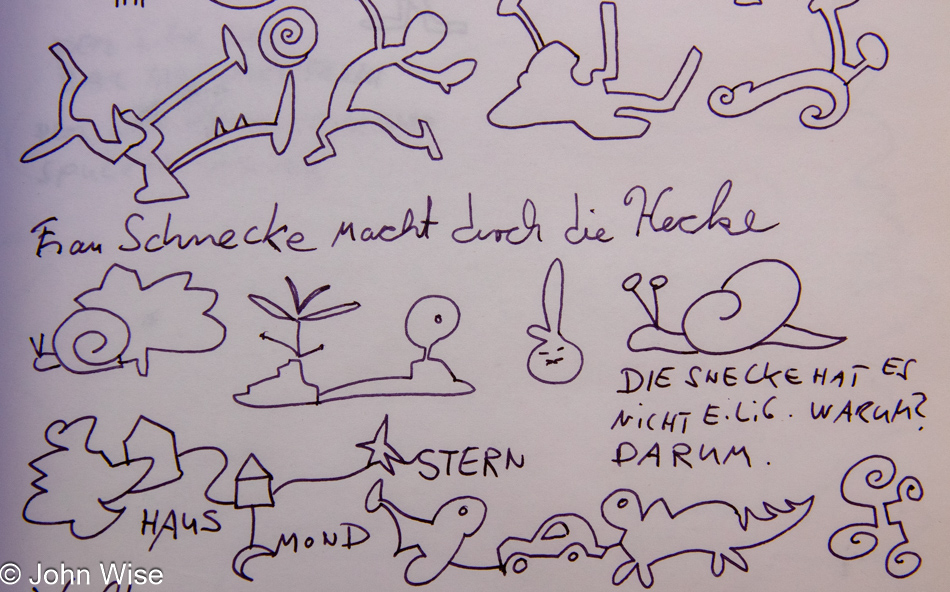 Frau Schnecke macht durch die Hecke
DIE SNECKE HAT ES
NICHT EiLiG. WARUM?
DARUM.
STERN
HAUS
MOND
© John Wise